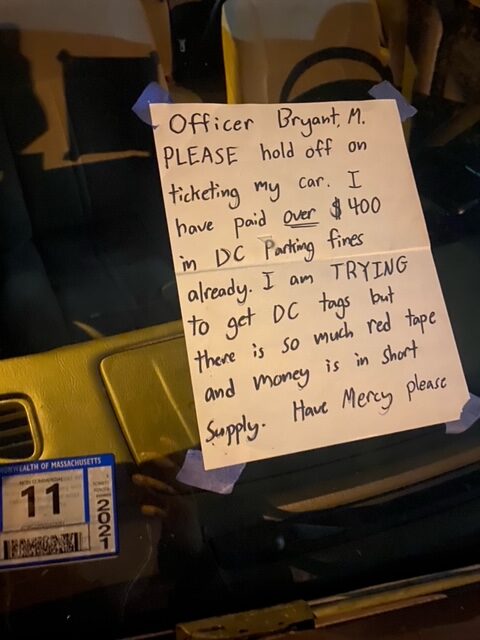 Officer Bryant, M.
PLEASE hold off on
ticketing my car. I
have paid over $400
in DC Parking fines
already. I am TRYING
to get DC tags but
there is so much red tape
and money is in short
supply. Have Mercy please
COMMONWEALTH OF MASSACHUSETTS
11
2021